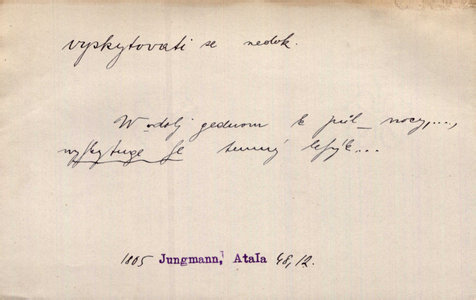 vyskytovati se nedok.
W odolj gednom k půl_nocy,...,
wyskytuge se temný lesýk...
1805 Jungmann, Atala 48,12.